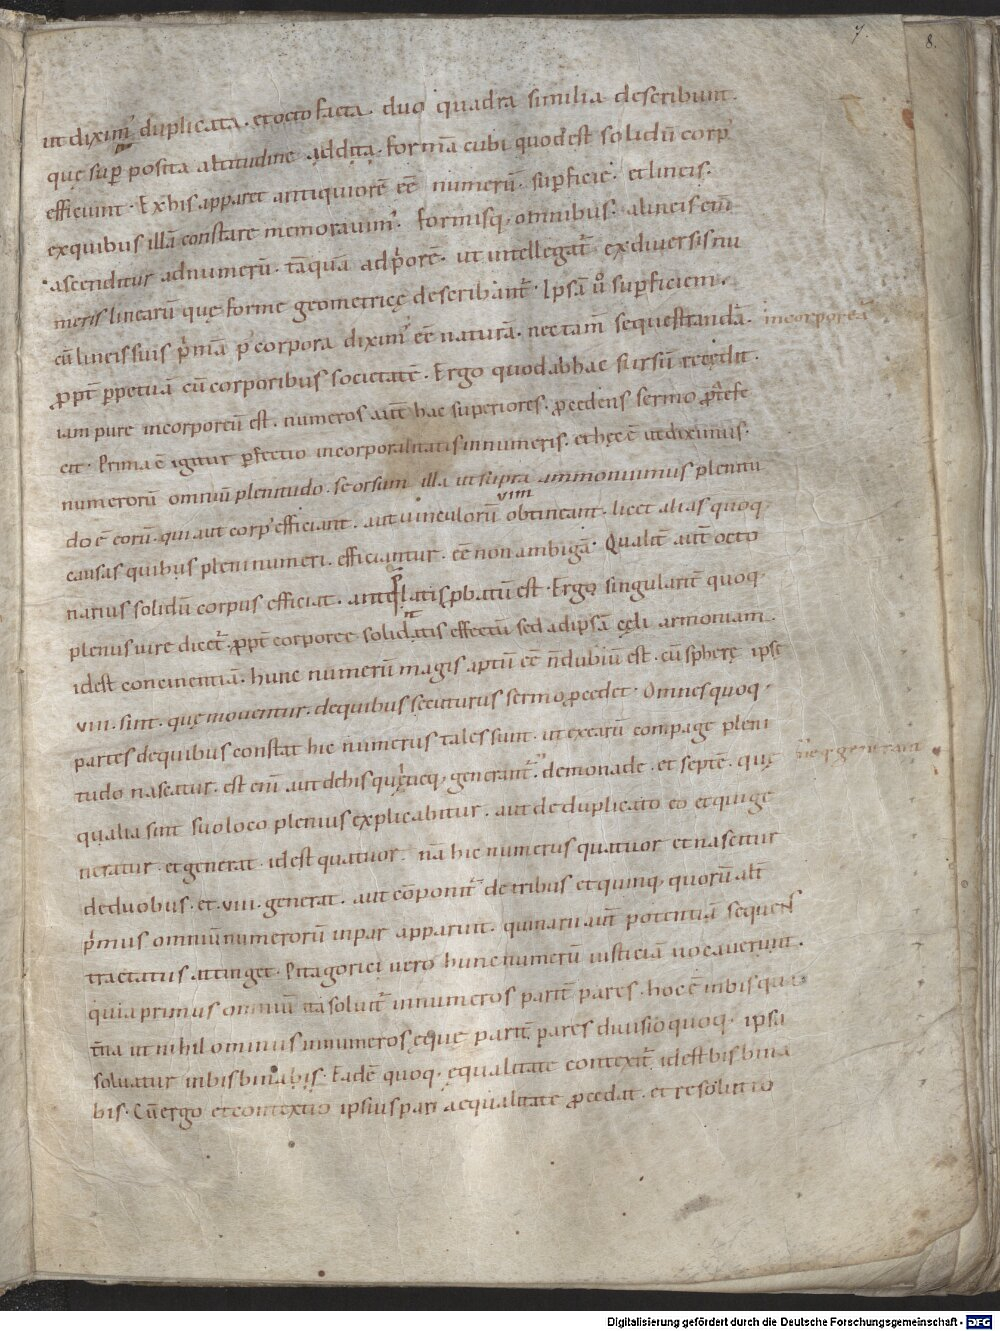 7. 8.
ut diximꝰ duplicata. et octo facta. duo quadra similia describunt.
quę sup̄ posita altitudine addita. formā cubi quod est solidū corpꝰ
efficiunt. Ex his apparet antiquiorē eē numerū. sup̄ficie. et lineis.
ex quibus illā constare memorauimꝰ. formisq; omnibus. a lineis eni͞m
ascenditur ad numerū. tāquā ad p̍orē. ut intellegat̄. ex diuersis nu
meris linearū quę forme geometricę describant̄. Ipsā ů sup̄ficiem.
cū lineis suis p̍mā p̍ corpora diximꝰ eē naturā. nec tam̄ sequestrandā.
ꝓpt̄ ꝑpetuā cū corporibus societatē. Ergo quod ab hac sursū recędit.
incorporeā
iam pure incorporeū est. numeros aut̄ hac superiores. ꝓcedens sermo ꝓ̄tefe
cit. Prima ē igitur ꝑfectio incorporalitatis in numeris. et hęc ē ut diximus.
numerorū omniū plenitudo. seorsum illa ut supra ammonuimus plenitu
do ē eorū. qui aut corpꝰ efficiant. aut uinculorū obtineant. licet alias quoq;
vim
causas quibus pleni numeri. efficiantur. eē non ambigā. Qualit̄ aut̄ octo
narius solidū corpus efficiat. anteˡatis ꝓbatū est. Ergo singularit̄ quoq;
plenus uire dicet̄. ꝓpt̄ corporee solidatis effectū sed ad ipsā cęli armoniam.
id est concinentiā. hunc numerū magis aptū eē n̄ dubiū est. cū spherę ipsę
VIII. sint. quę mouentur. de quibus secuturus sermo ꝓcedet. Omnes quoq;
partes de quibus constat hic numerus tales sunt. ut ex earū compage pleni
tudo nascatur. est eni͞m aut de his quę neq; generant̄. de monade. et septē. quę
neq; generant
qualia sint suo loco plenius explicabitur. aut de duplicato eo et qui ge
neratur. et generat. id est quatuor. nā hic numerus quatuor et nascitur
de duobus. et VIII. generat. aut cōponit̄ de tribus et quinq; quorū alt̄
p̍mus omniū numerorū inpar apparuit. quinarii aut̄ potentiā sequens
tractatus attinget. Pitagorici uero hunc numerū iusticiā uocauerunt.
quia primus omniū ita soluit̄ in numeros parit̄ pares. hoc ē in bis qua
t̄na ut nihilominus in numeros ęque parit̄ pares diuisio quoq; ipsa
soluatur in bis bina bis. Eadē quoq; ęqualitate contexit̄. id est bis bina
bis. Cū ergo et contextio ipsius pari aequalitate ꝓcedat. et resolutio
Digitalisierung gefördert durch die Deutsche Forschungsgemeinschaft - DFG